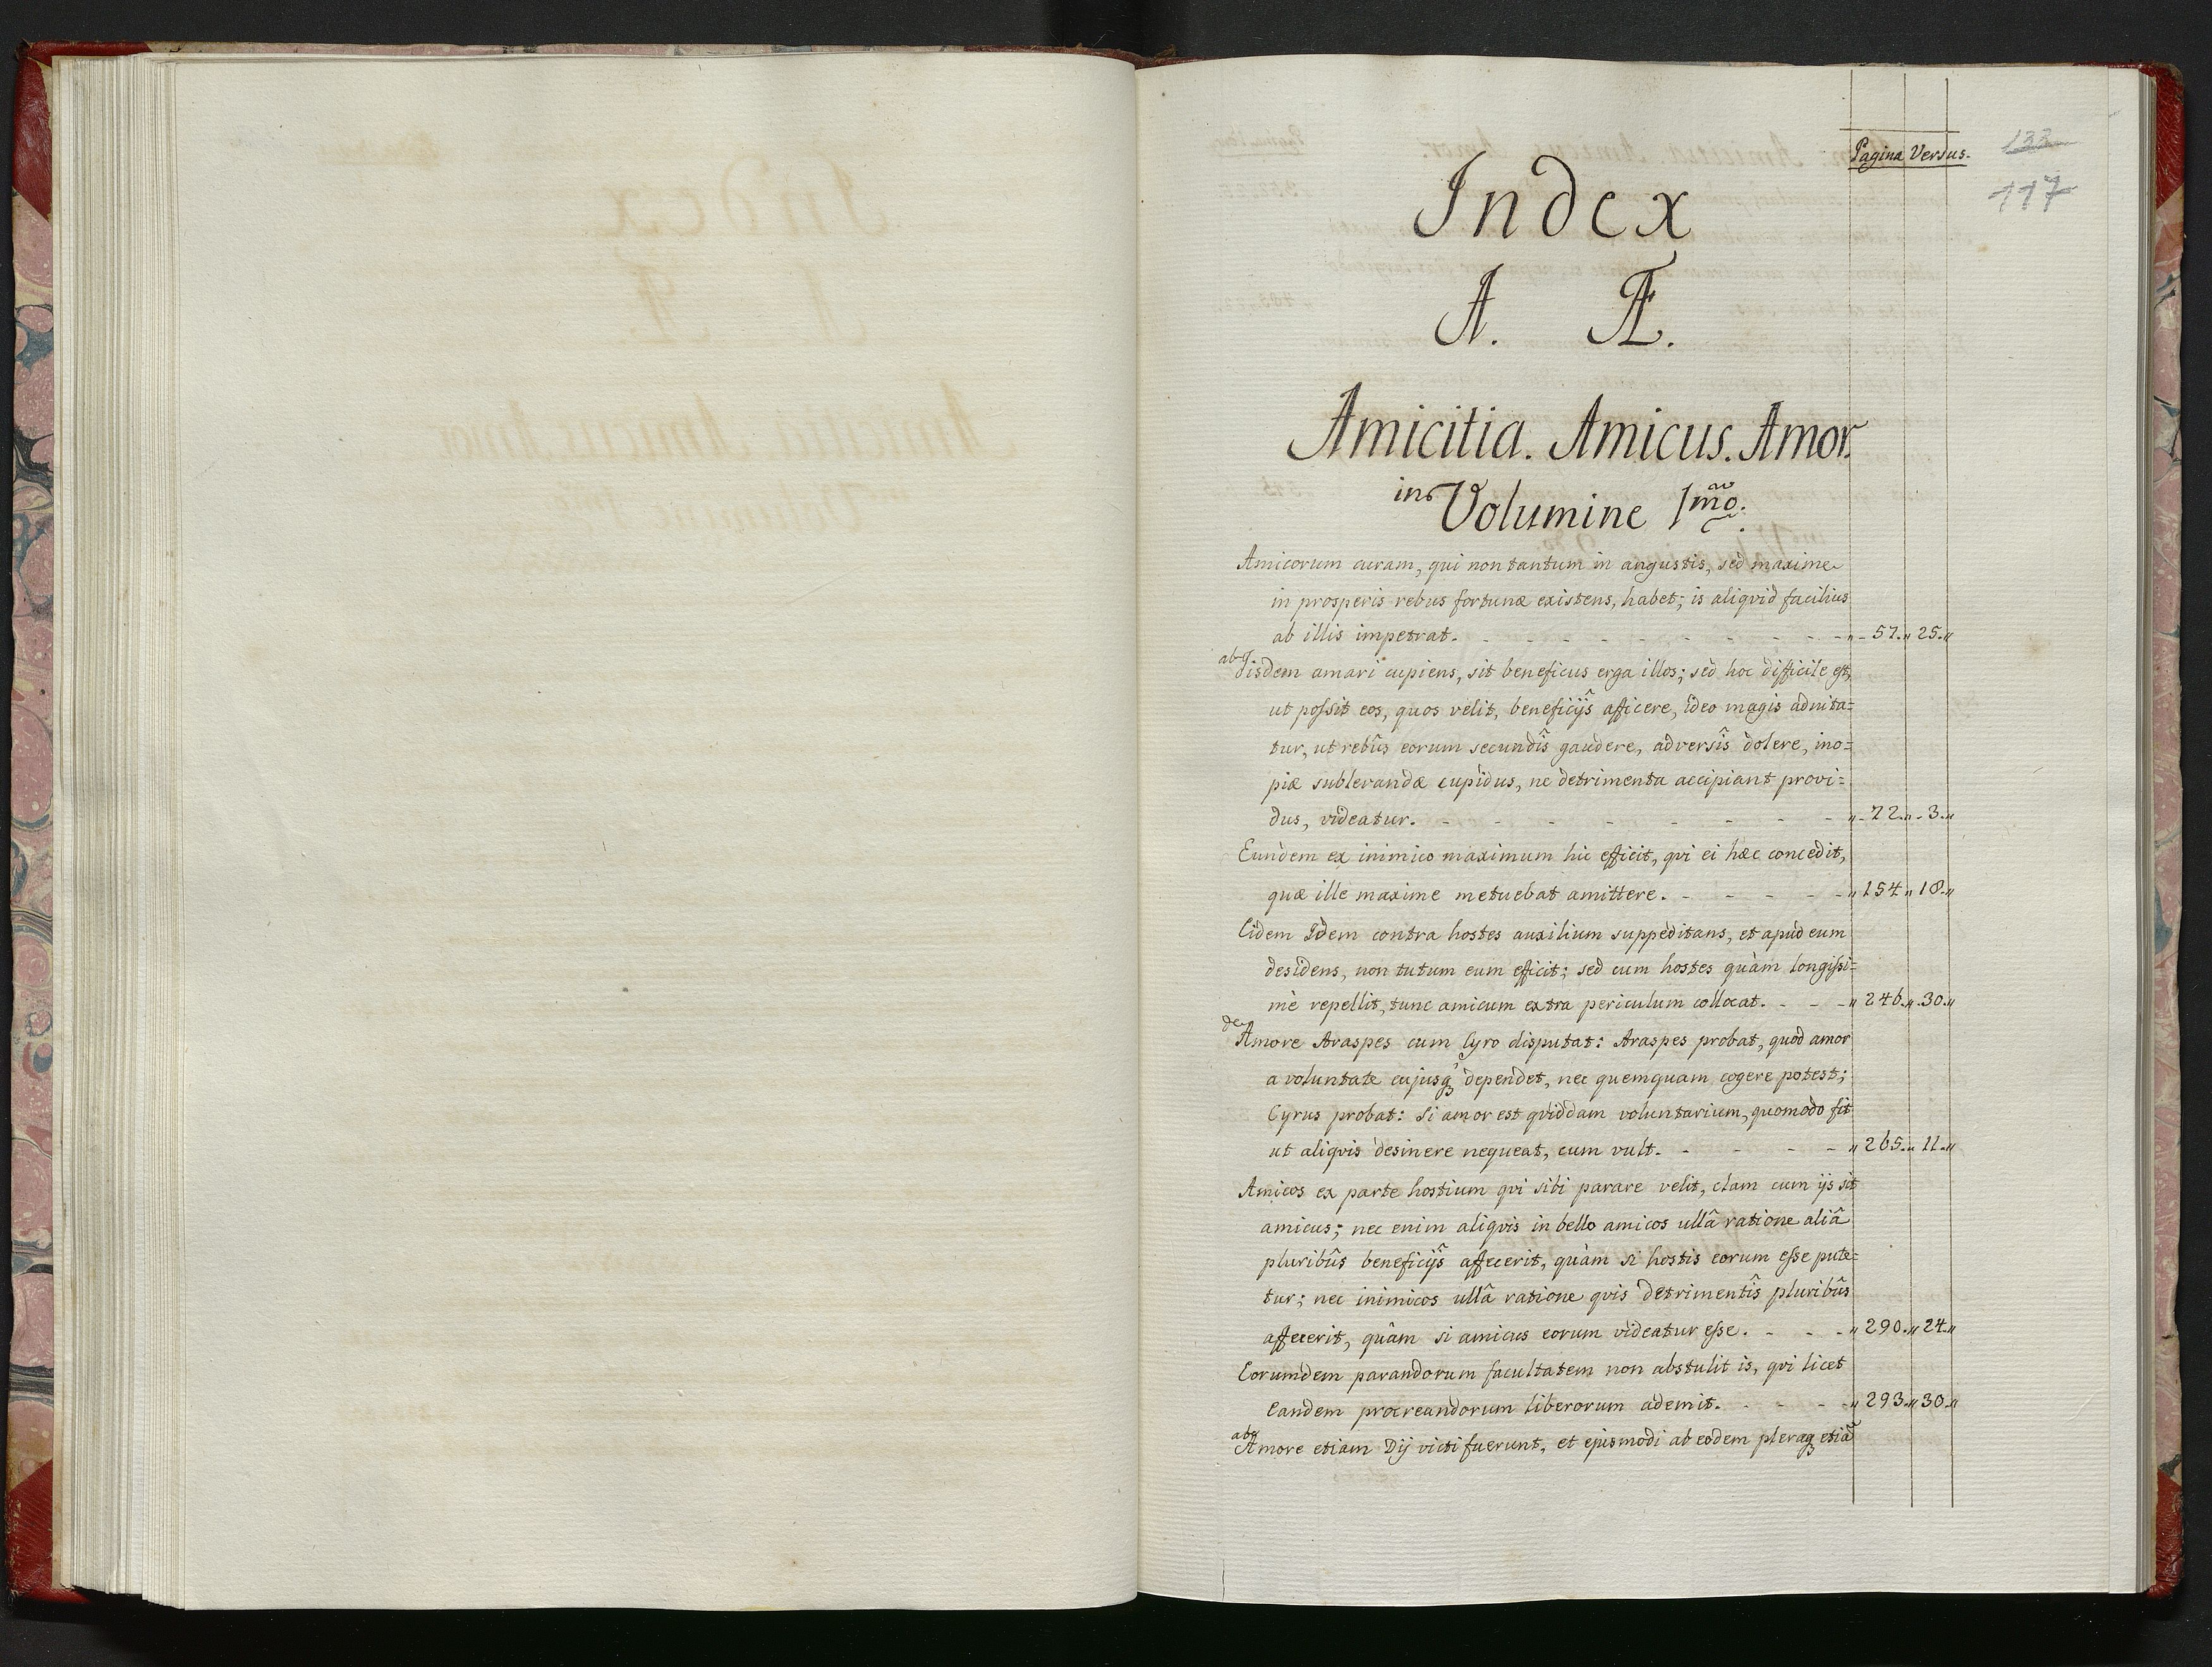 Pagina Versus.
133
117
Index
A. Æ.
Amicitia. Amicus. Amor.
in Volumine 1mo.
Amicorum curam, qui non tantum in angustis, sed maxime
in prosperis rebus fortunæ existens, habet; is aliqvid facilius
ab illis impetrat. - - - - - - - - - - „- 57.„ 25.„
ab Iisdem amari cupiens, sit beneficus erga illos; sed hoc difficile est,
ut possit eos, quos velit, beneficijs afficere, ideo magis adnita=
tur, ut rebûs eorum secundîs gaudere, adversîs dolere, ino=
piæ sublevandæ cupidus, ne detrimenta accipiant provi=
dus, videatur. - - - - - - - - „- 72.„- 3.„
Eundem ex inimico maximum hic efficit, qvi ei hæc concedit,
quæ ille maxime metuebat amittere. - - - - - „ 154.„ 18.„
Eidem Idem contra hostes auxilium suppeditans, et apud eum
desidens, non tutum eum efficit; sed cum hostes quàm longissi=
mè repellit, tunc amicum extra periculum collocat. - - - „ 246.„ 30.„
de Amore Araspes cum Cyro disputat: Araspes probat, quod amor
a voluntate cujusq dependet, nec quemquam cogere potest;
Cyrus probat: si amor est qviddam voluntarium, quomodo fit
ut aliqvis desinere nequeat, cum vult. - - - - „ 265.„ 11.„
Amicos ex parte hostium qvi sibi parare velit, clam cum ijs sit
amicus; nec enim aliqvis in bello amicos ullâ ratione aliâ
pluribûs beneficijs affecerit, quàm si hostis eorum esse pute=
tur; nec inimicos ullâ ratione qvis detrimentîs pluribûs
affecerit, quâm si amicus eorum videatur esse. - - - „ 290.„ 24.„
Eorumdem parandorum facultatem non abstulit is, qvi licet
Eandem procreandorum liberorum ademit. - - - - „ 293.„ 30.„
ab Amore etiam Dij victi fuerunt, et ejusmodi ab eodem pleraq etiã